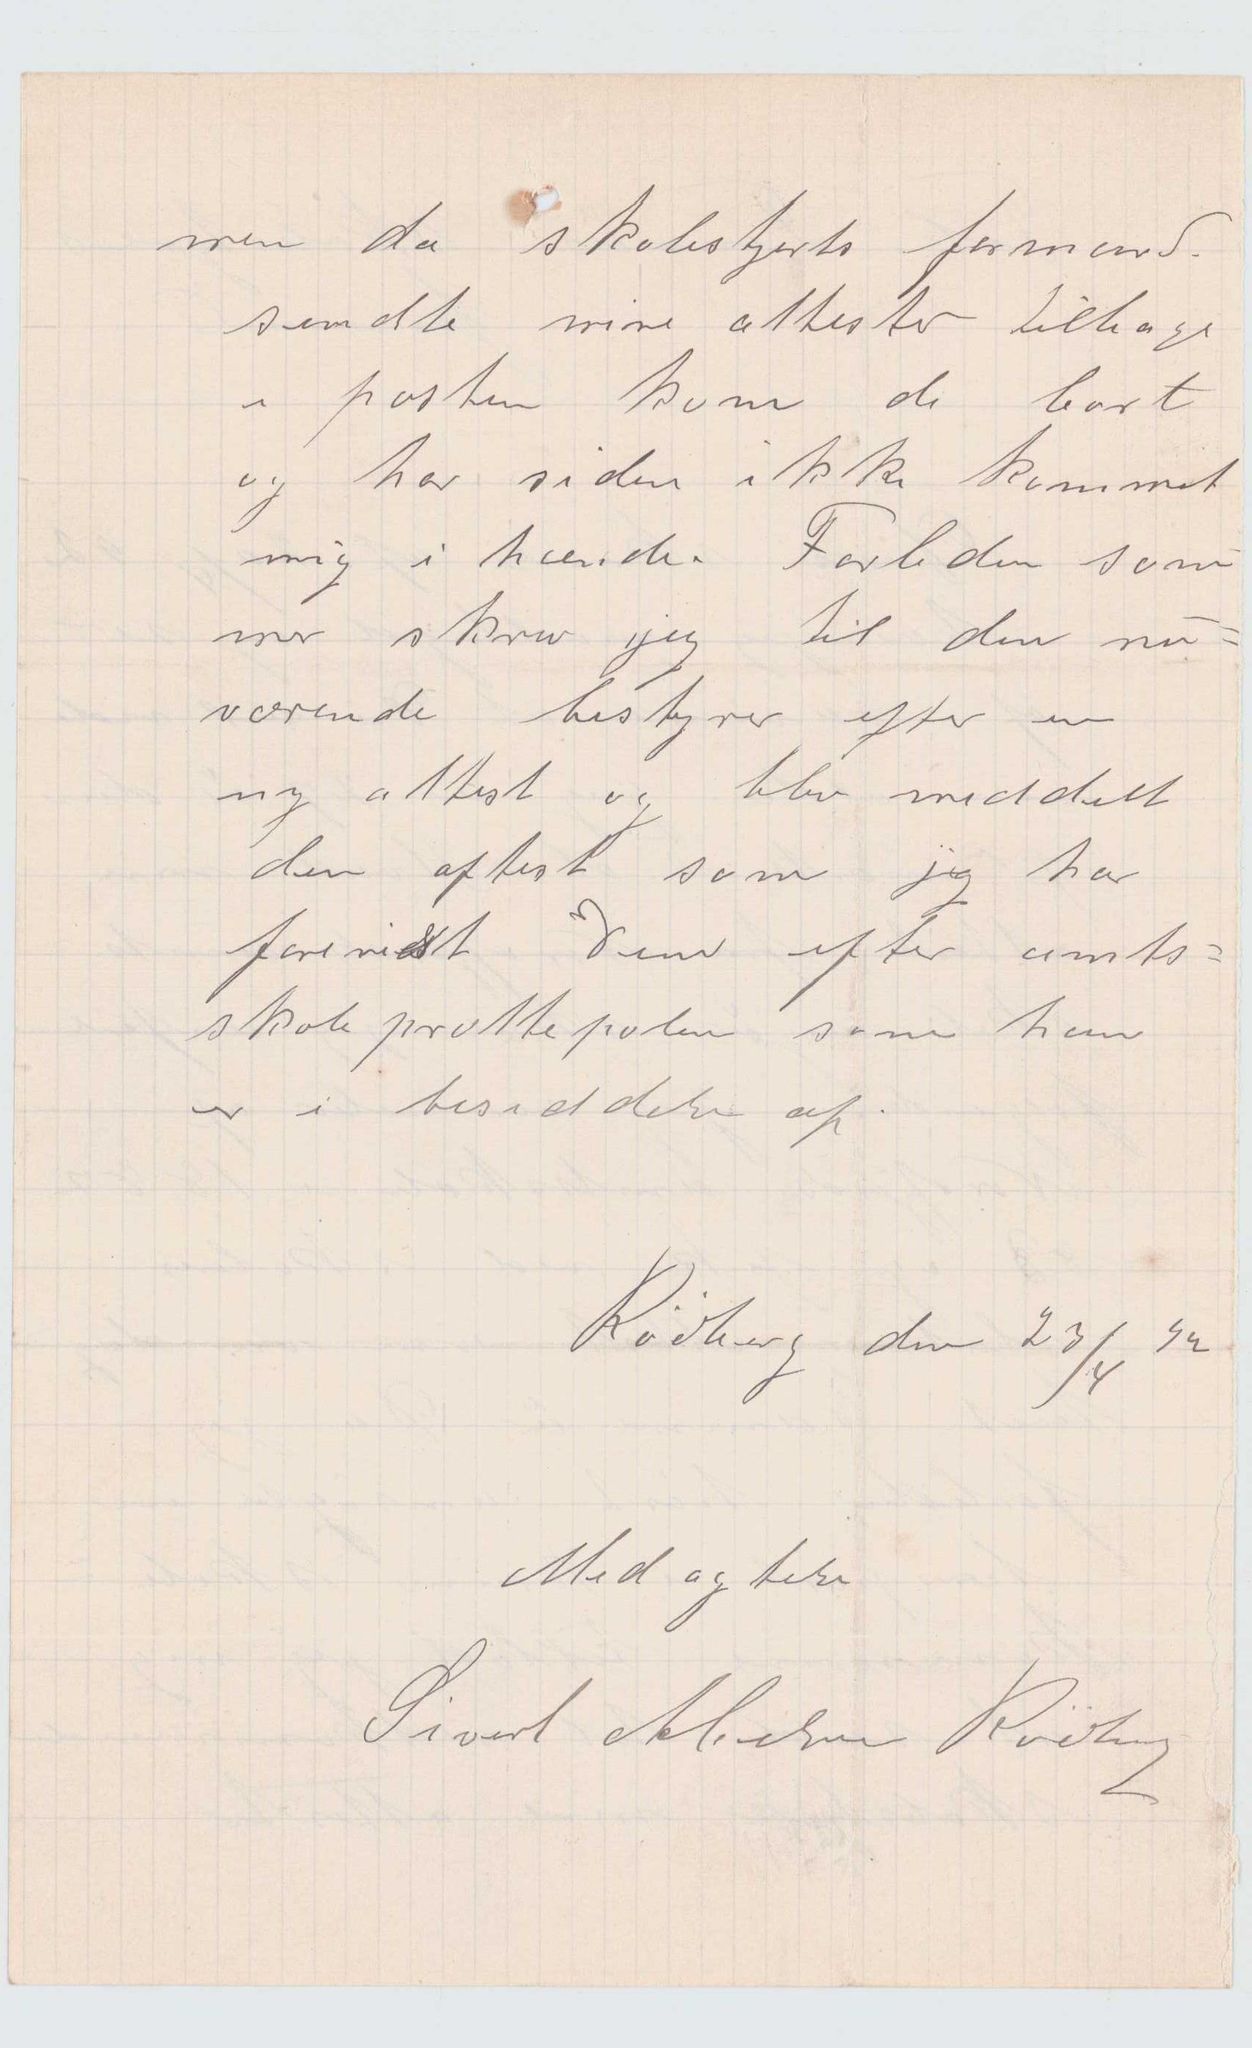 men da skolestyrets formand.
sendte mine attester tilbage
i posten kom de bort
og har siden ikke kommet
mig i hænde. Forleden som
mer skrev jeg til den nu=
værende bestyrer efter en
ny attest og blev meddelt
den attest som jeg har
forevist. Den efter amts=
skoleprottepolen som han
er i besiddelse af.
Rödberg den 23/4 92
Med agtelse
Sivert Rödberg